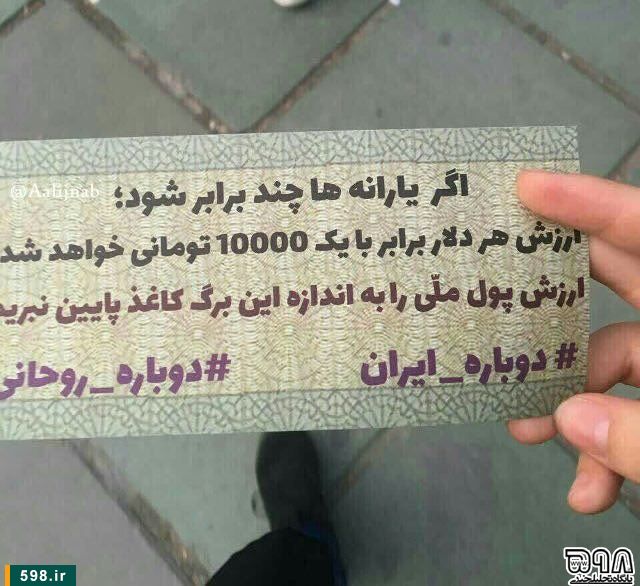 @Aalijnab
اگر یارانه ها چند برابر شود؛
ارزش هر دلار برابر با یک 10000 تومانی خواهد شد
ارزش پول ملّی را به اندازه این برگ کاغذ پایین نبرید
# دوباره_ایران #دوباره_روحانی
598.ir
۵۹۸